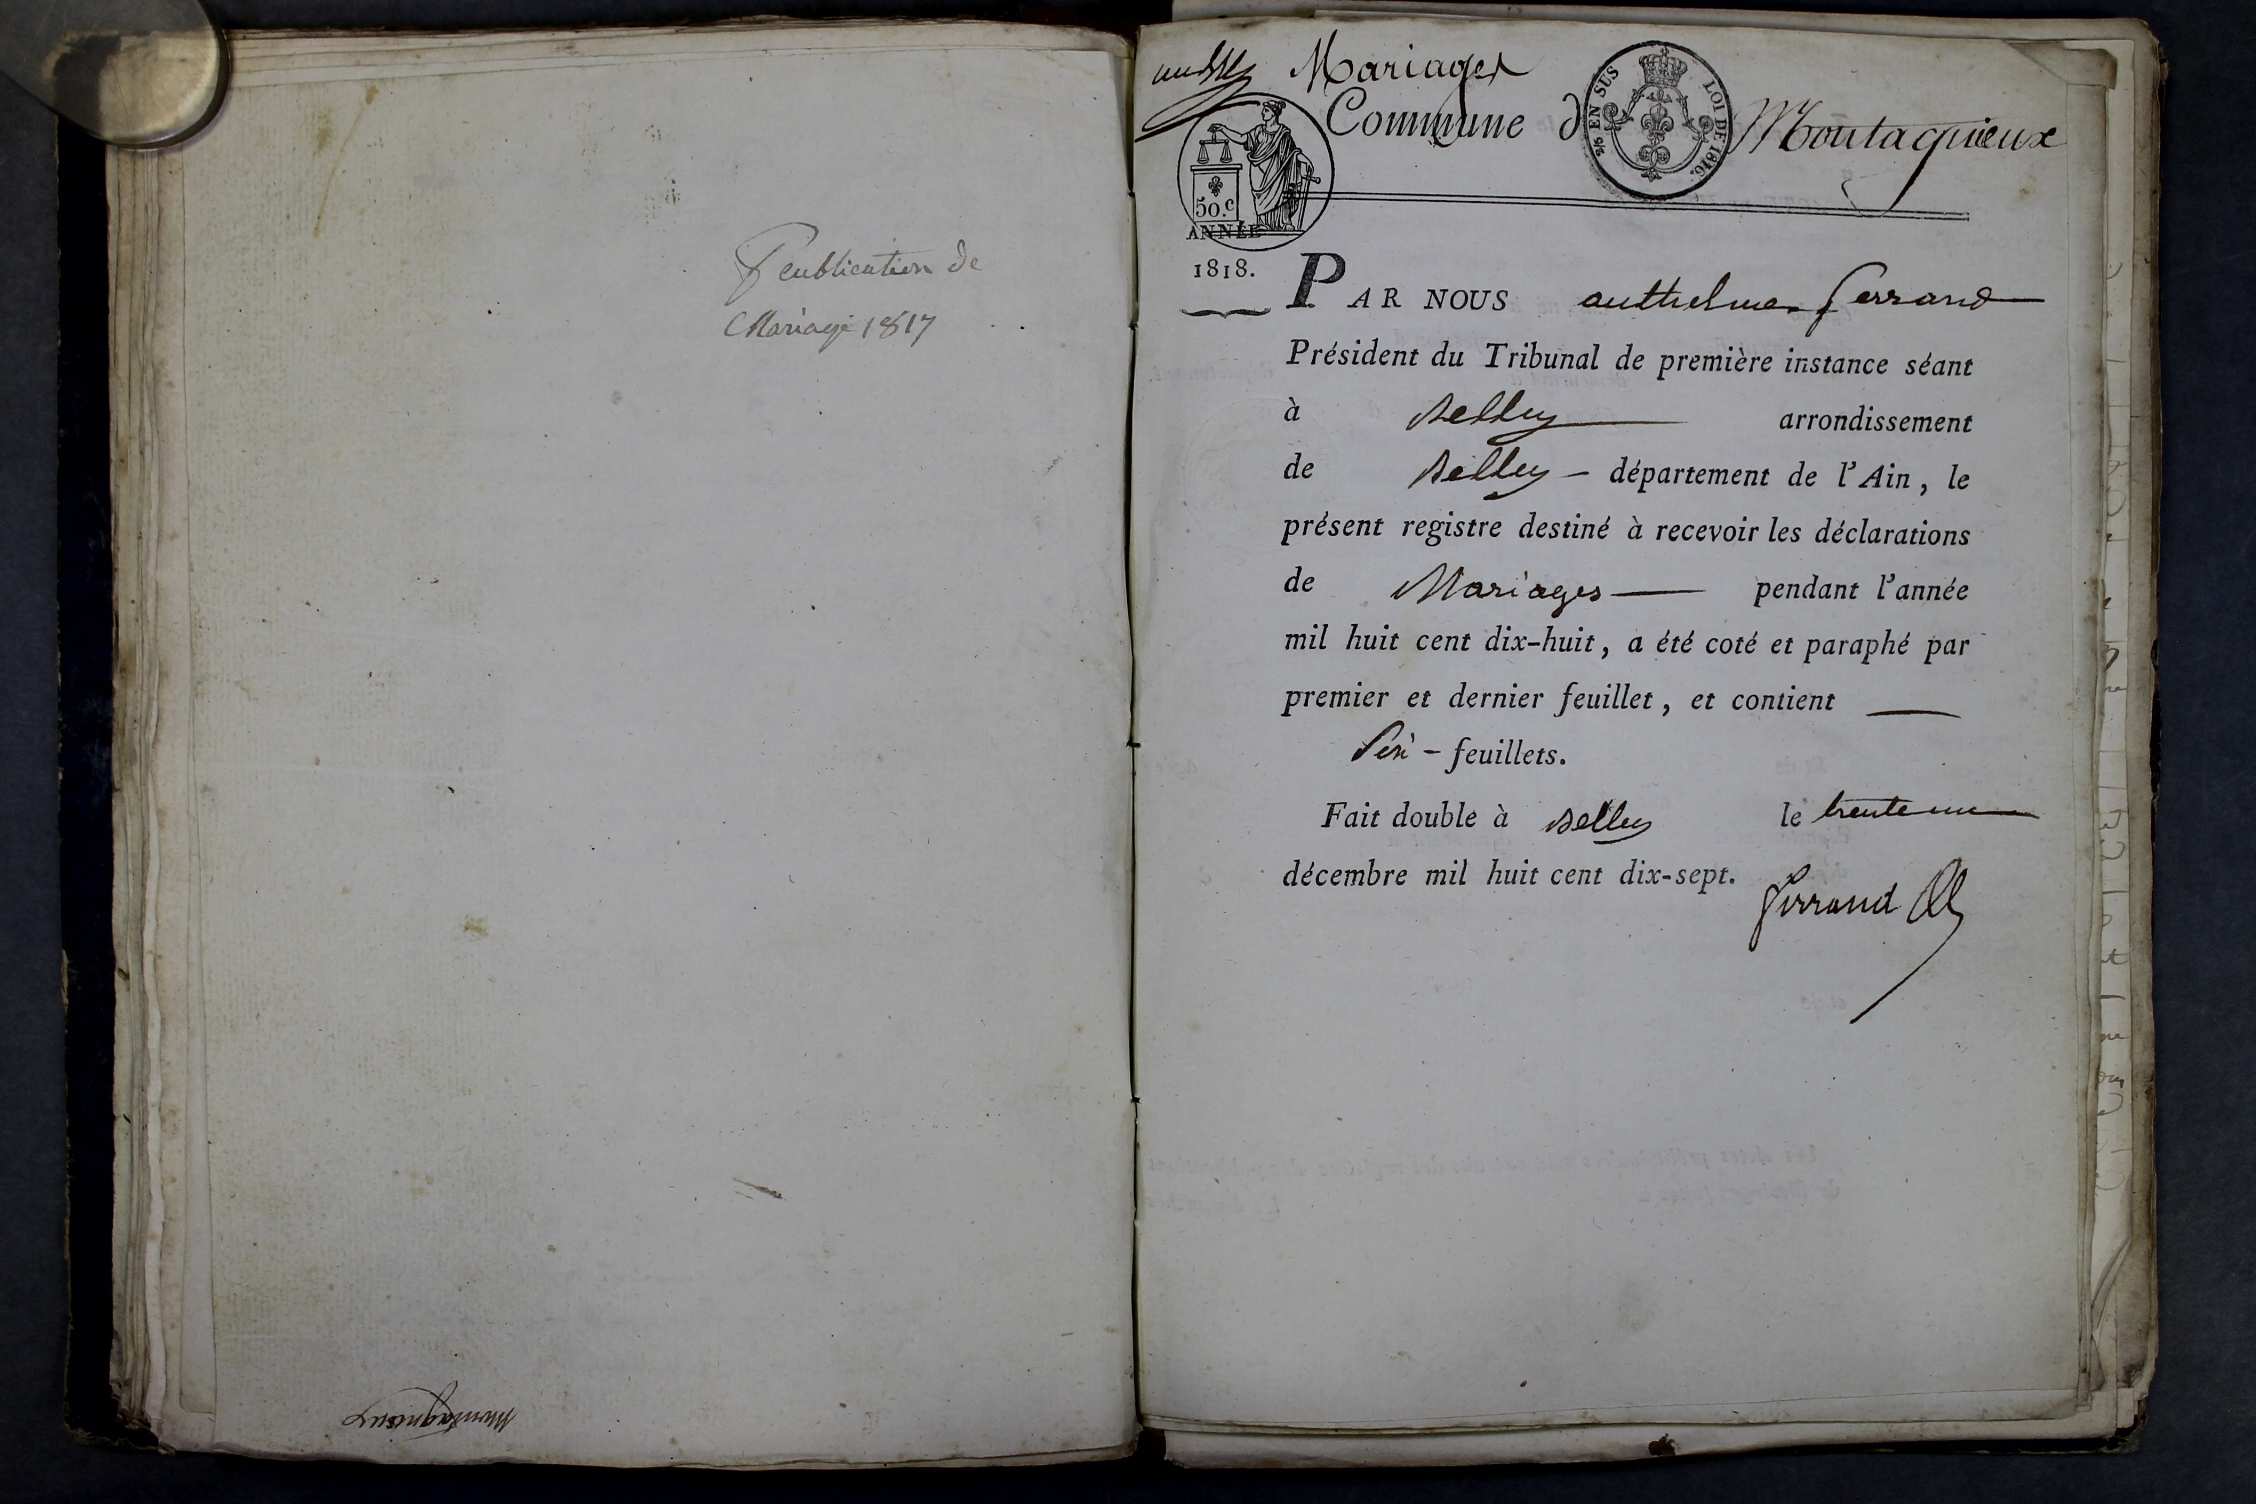 Peublication de
Mariage 1817
Montagnieux
Mariages
Commune d
Montagnieux
25 EN SUS
LOI DE 1816.
50.c
ANNÉE
1818.
PAR NOUS anthelme ferrand
Président du Tribunal de première instance séant
à Belley arrondissement
de Belley - département de l'Ain, le
présent registre destiné à recevoir les déclarations
de Mariages pendant l'année
mil huit cent dix-huit, a été coté et paraphé par
premier et dernier feuillet, et contient
Six - feuillets.
Fait double à Belley le trente un
décembre mil huit cent dix-sept.
ferrand